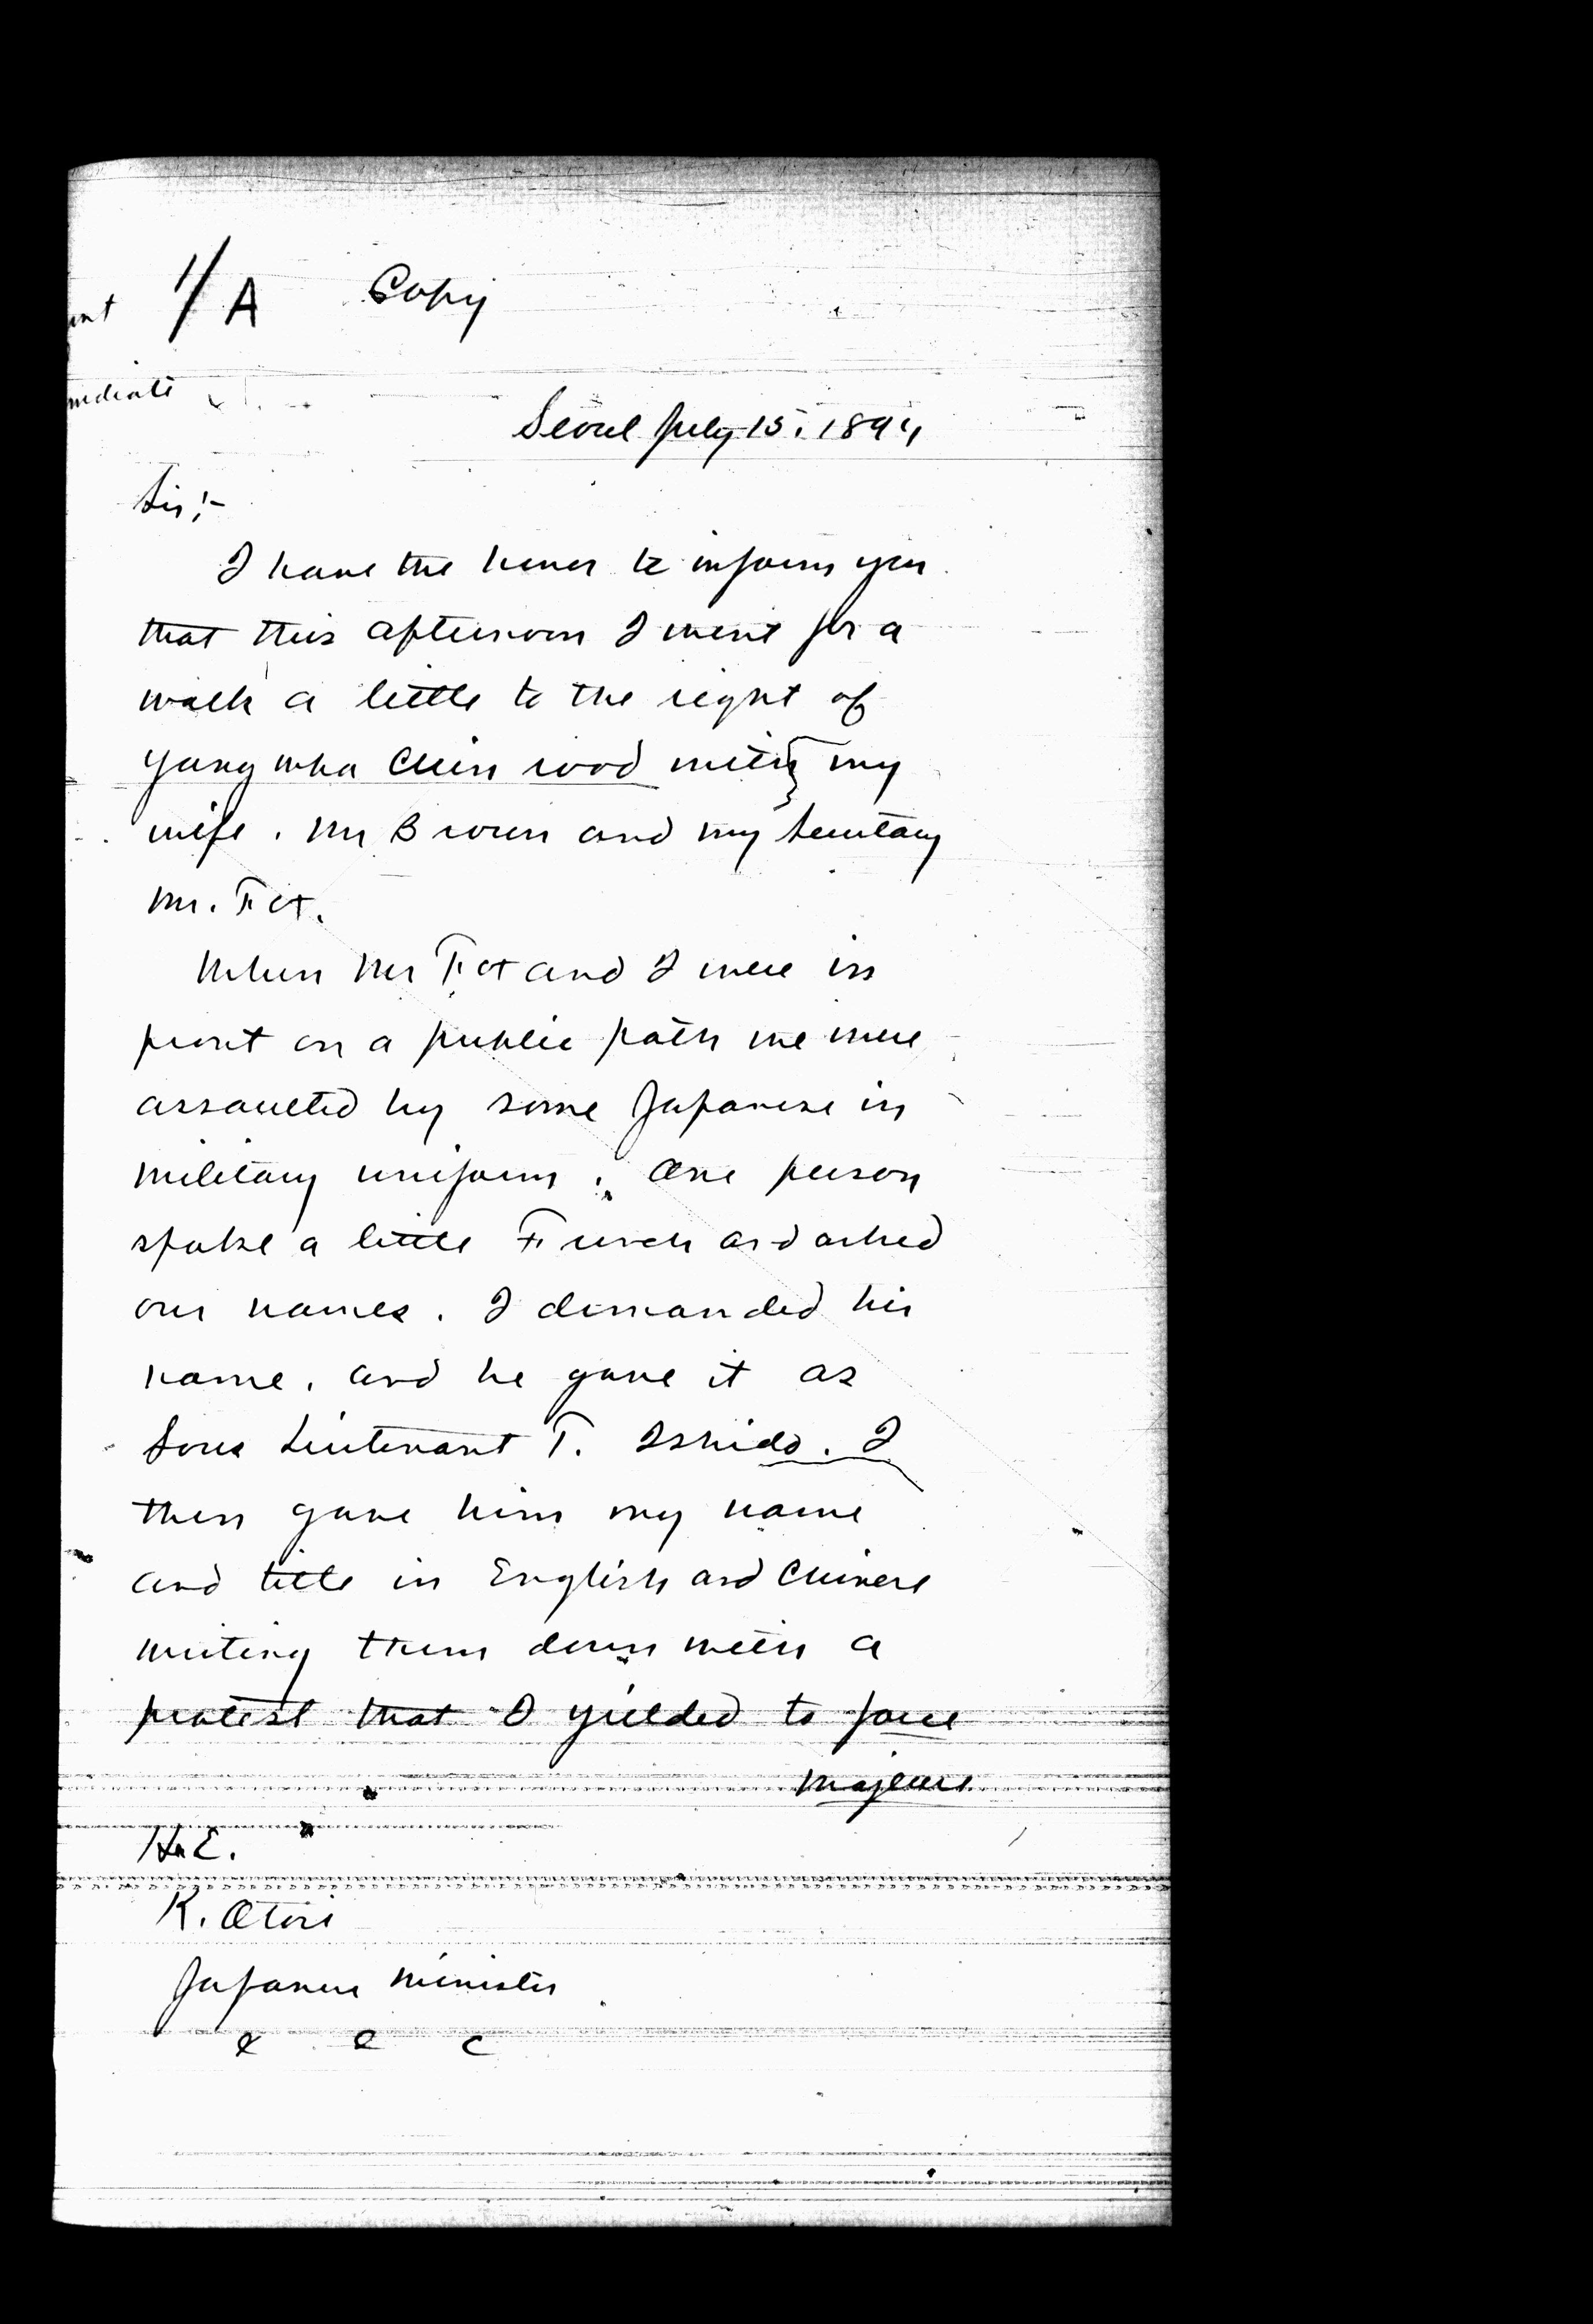 1/A Copy
Seoul July 15, 1894
Sir;-
I have the honor to inform you
that this afternoon I went for a
walk a little to the right of
Yang wha Chin road with my
wife. Mr Brown and my Secretary
Mr. Fox.
When Mr Fox and I were in
front on a public path we were
assaulted by some Japanese in
military uniform. One person
spoke a little French and asked
our names. I demanded his
name, and he gave it as
Sous Lieutenant T. Ishido. I
then gave him my name
and title in English and Chinese
writing them down with a
protest that I yielded to force
majeure
H.E.
K. Otori
Japanese Minister